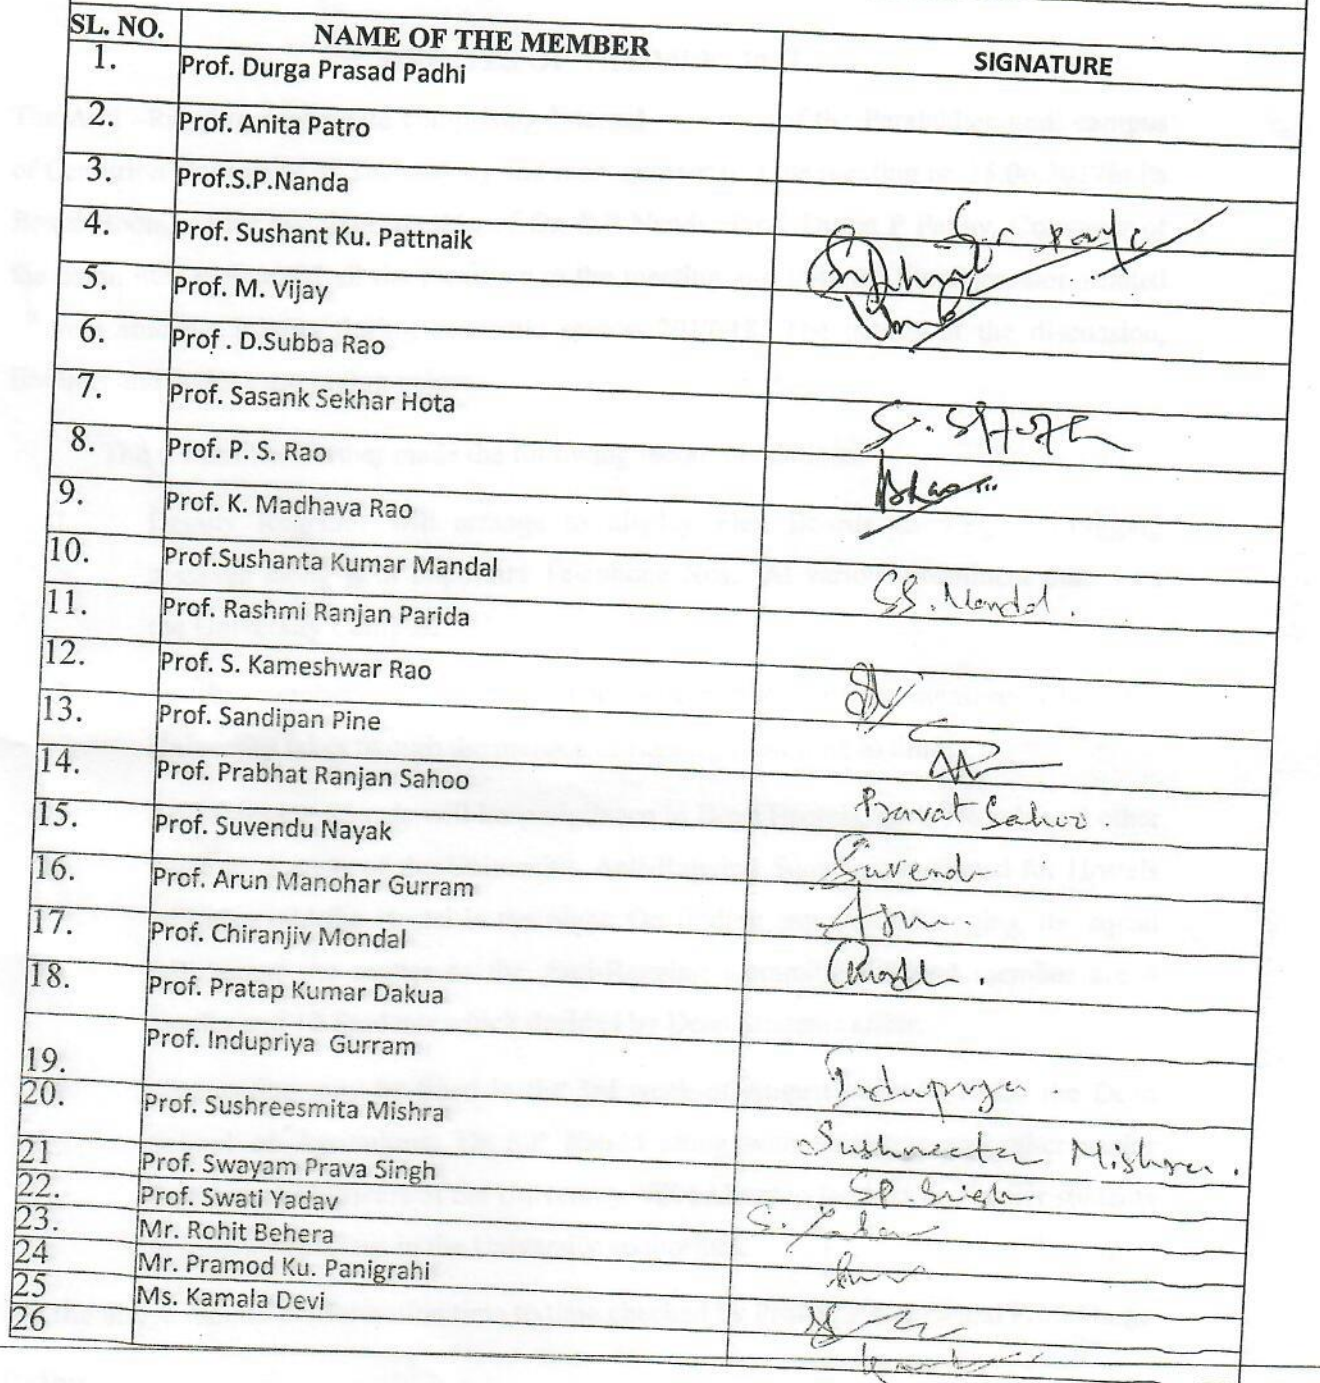 SL. NO. NAME OF THE MEMBER SIGNATURE
1. Prof. Durga Prasad Padhi
2. Prof. Anita Patro
3. Prof.S.P.Nanda
4. Prof. Sushant Ku. Pattnaik
5. Prof. M. Vijay
6. Prof . D.Subba Rao
7. Prof. Sasank Sekhar Hota
8. Prof. P. S. Rao
9. Prof. K. Madhava Rao
10. Prof.Sushanta Kumar Mandal
11. Prof. Rashmi Ranjan Parida
12. Prof. S. Kameshwar Rao
13. Prof. Sandipan Pine
14. Prof. Prabhat Ranjan Sahoo
Pravat Sahoo
15. Prof. Suvendu Nayak
Suvendu
16. Prof. Arun Manohar Gurram
17. Prof. Chiranjiv Mondal
18. Prof. Pratap Kumar Dakua
19. Prof. Indupriya Gurram
Indupriya
20. Prof. Sushreesmita Mishra
Mishra.
21 Prof. Swayam Prava Singh
SP. Singh
22. Prof. Swati Yadav
S. Yadav
23. Mr. Rohit Behera
24 Mr. Pramod Ku. Panigrahi
25 Ms. Kamala Devi
26